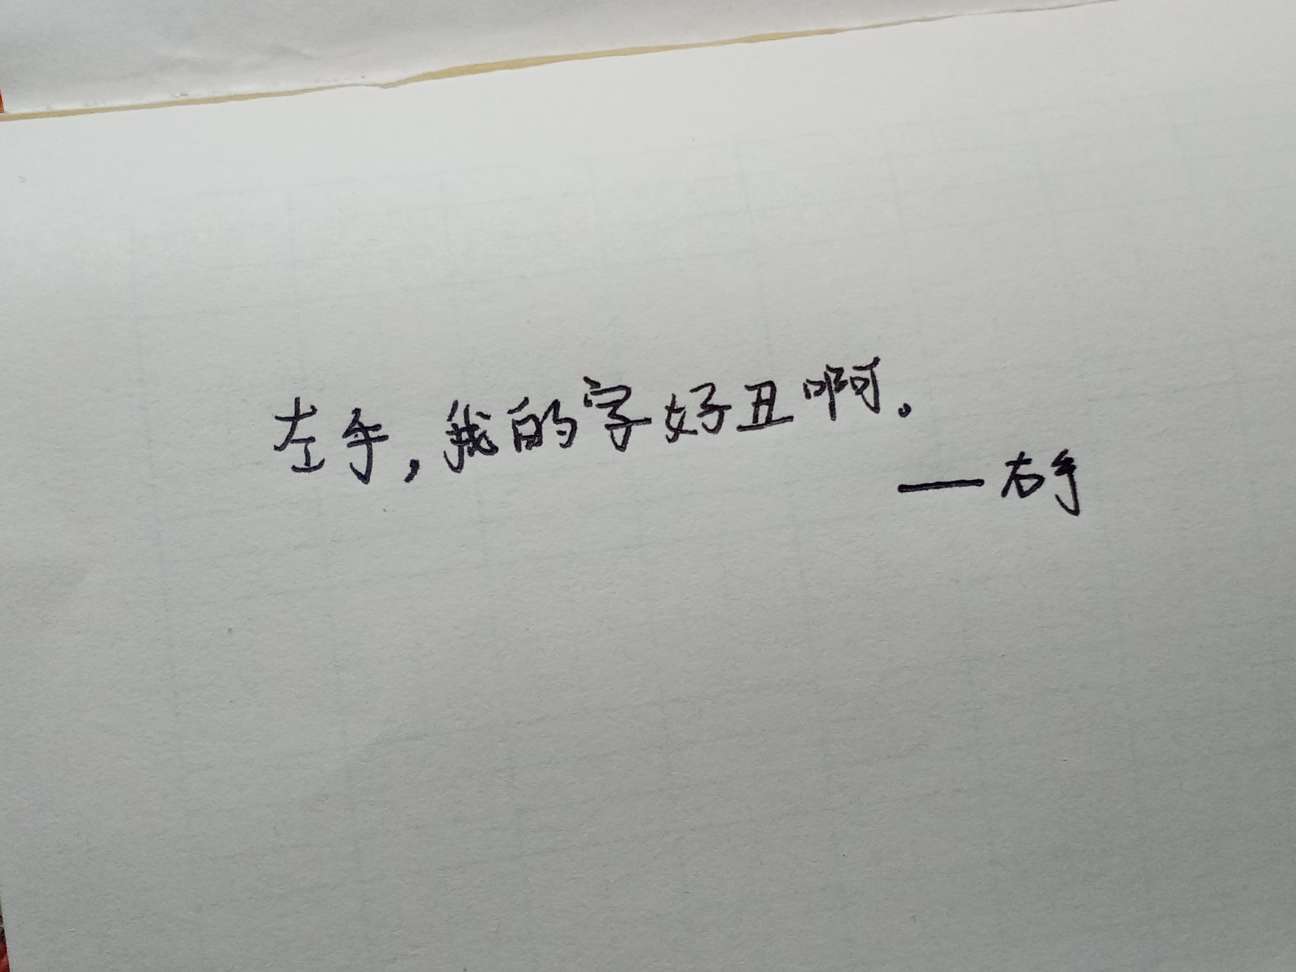 左手,我的字好丑啊。
——右手